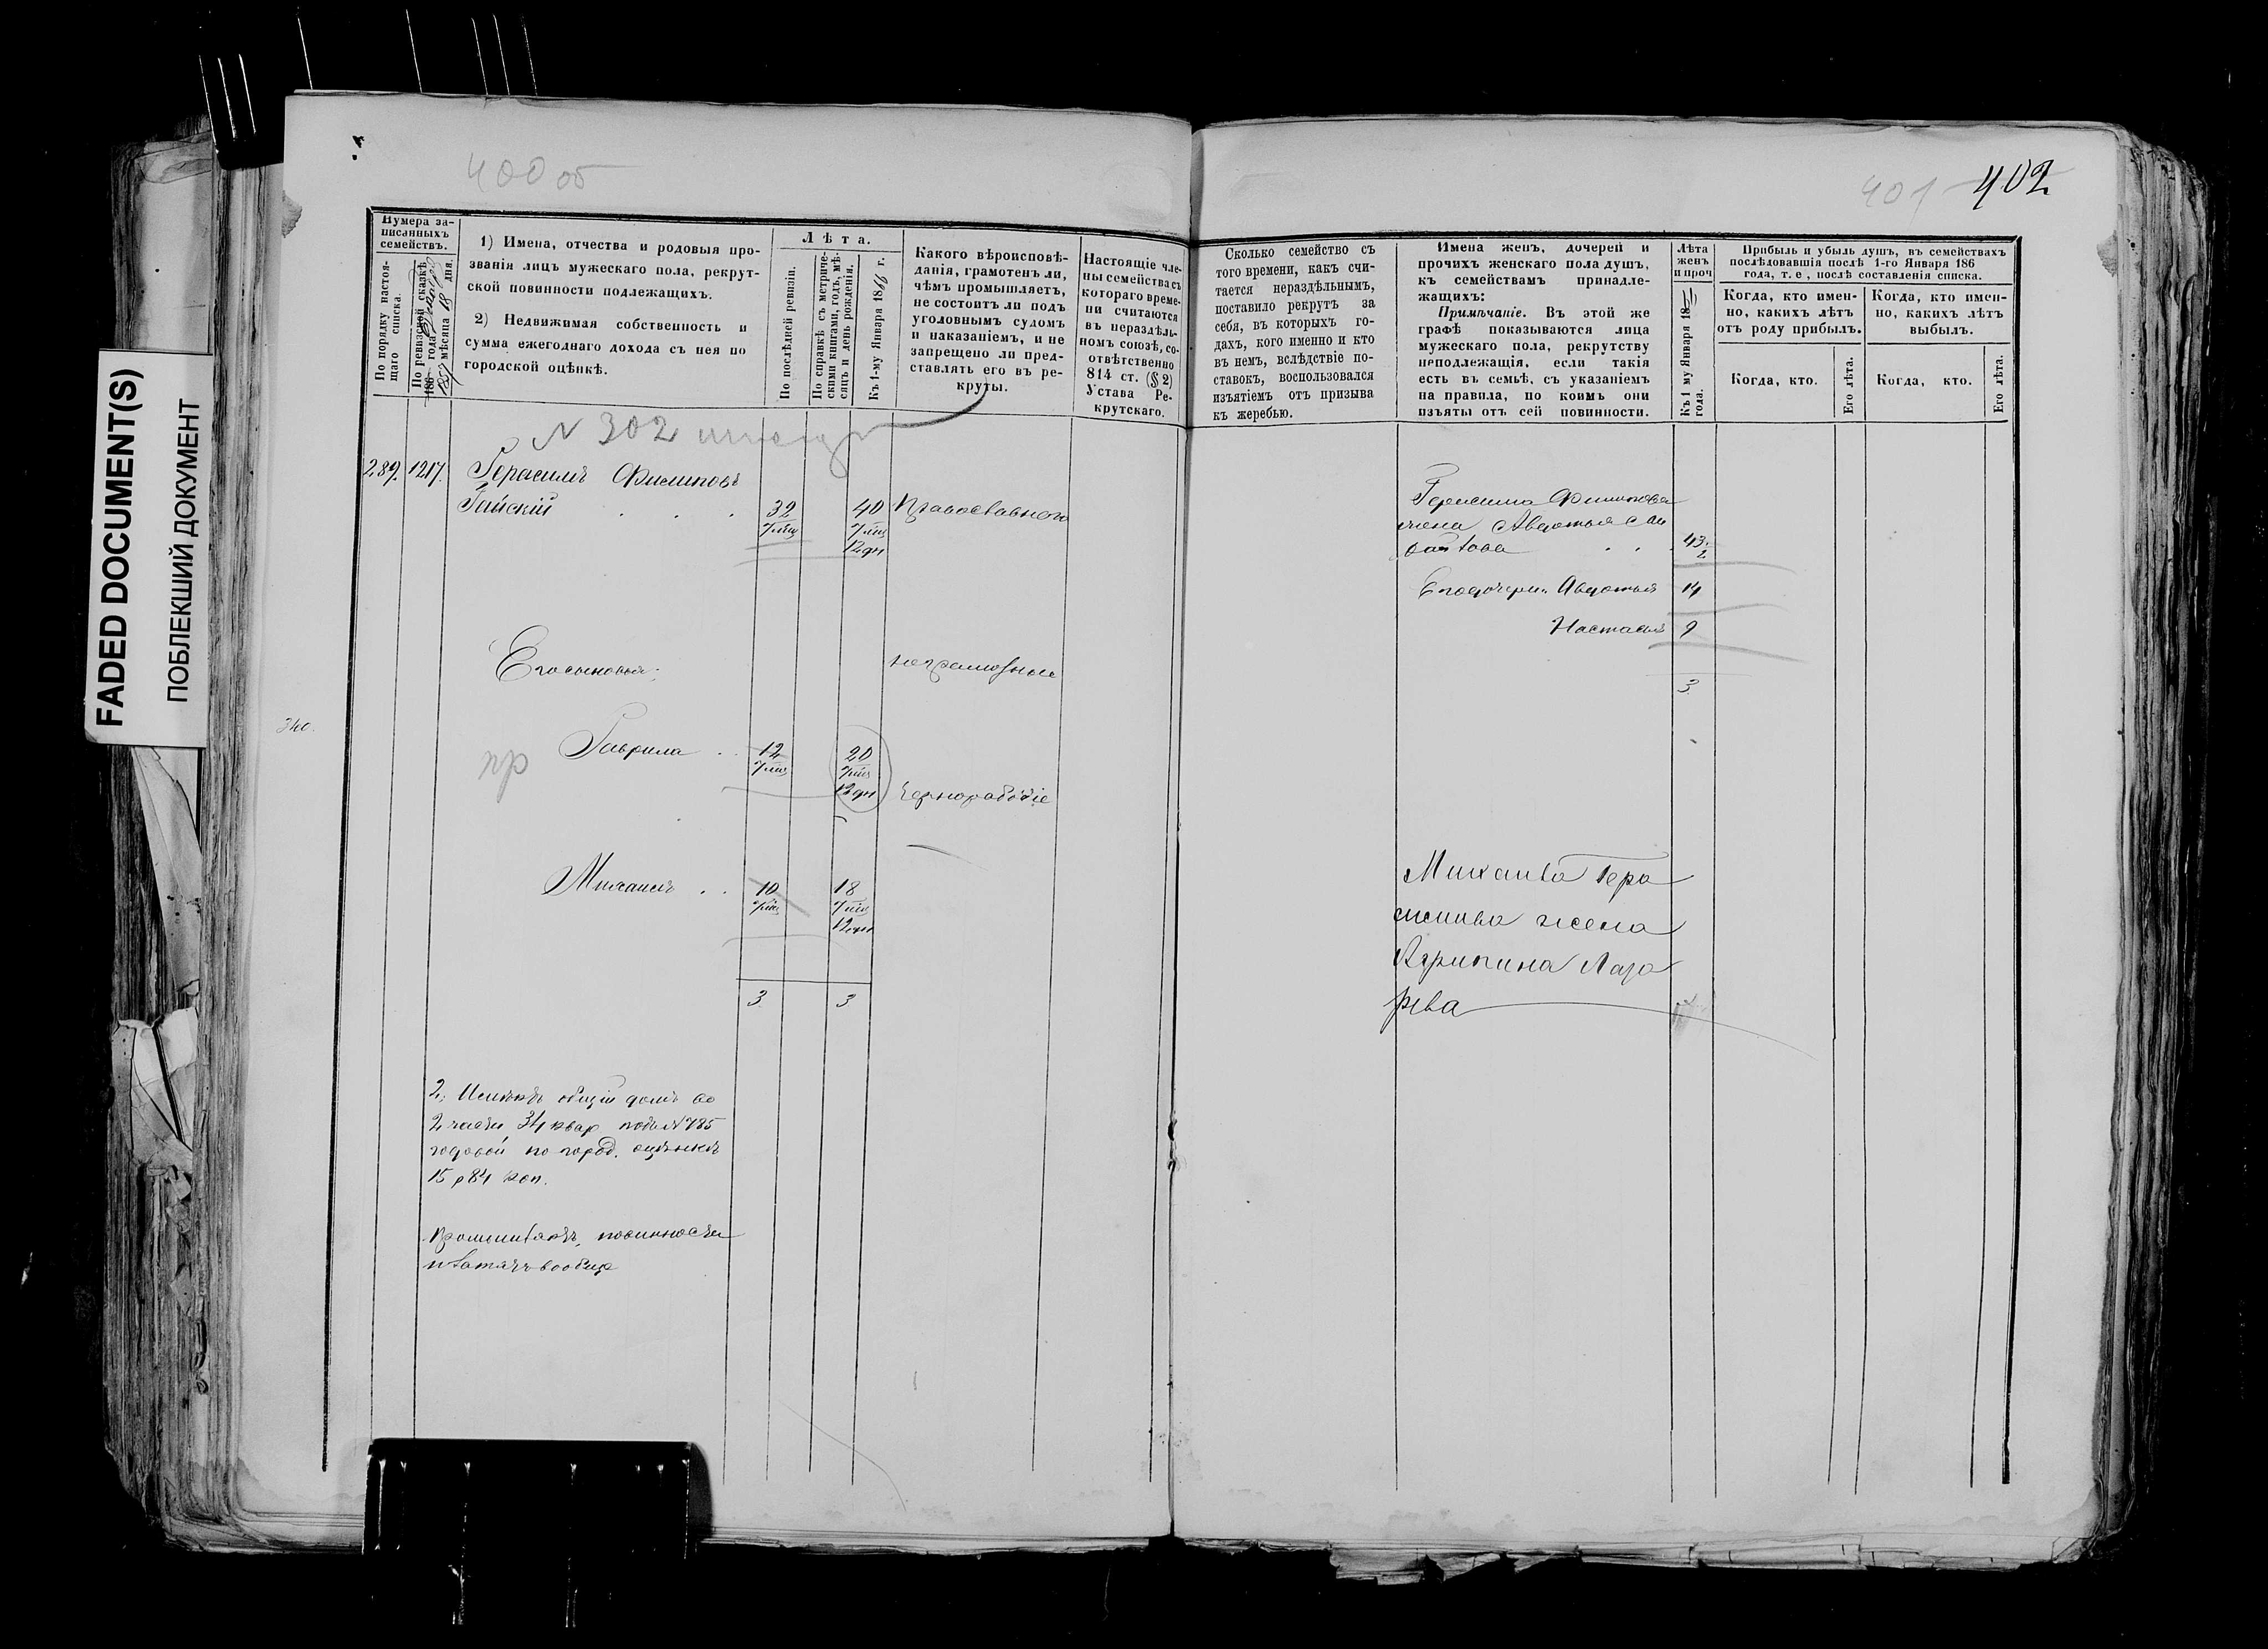 FADED DOCUMENT(S)
ПОБЛЕКШИЙ ДОКУМЕНТ
400 об
Нумера за-
писанныхъ
семействъ.
По порядку настоя-
щаго списка.
По ревизской сказкѣ
186 года
1857 мѣсяца 18 дня.
1) Имена, отчества и родовыя про-
званія лицъ мужескаго пола, рекрут-
ской повинности подлежащихъ.
2) Недвижимая собственность и
сумма ежегоднаго дохода съ нея по
городской оцѣнкѣ.
Лѣта.
По послѣдней ревизіи.
По справкѣ съ метриче-
скими книгами, годъ, мѣ-
сяцъ и день рожденія.
Къ 1-му Января 1866 г.
Какого вѣроисповѣ-
данія, грамотенъ ли,
чѣмъ промышляетъ,
не состоитъ ли подъ
уголовнымъ судомъ
и наказаніемъ, и не
запрещено ли пред-
ставлять его въ ре-
круты.
Настоящіе чле-
ны семейства съ
котораго време-
ни считаются
въ нераздѣль-
номъ союзѣ, со-
отвѣтственно
814 ст. (§ 2)
Устава Ре-
крутскаго.
N 302
289. 1217. Герасимъ Филиповъ
Гайскій . . . 32 40 Православнаго
7 мѣц 7 мѣц
12 дн
Его сыновья: неграмотные
340.
пр Гаврила . . 12 20
7 мѣц 7 мѣц
12 дн чернорабочіе
Михаилъ . . 10 18
7 мѣц 7 мѣц
12 дн
3 3
2; Имѣютъ общій домъ во
2 части 34 квар подъ N 785
годовой по город. оцѣнкѣ
15 р 84 коп.
повинности
401 402
Сколько семейство съ
того времени, какъ счи-
тается нераздѣльнымъ,
поставило рекрутъ за
себя, въ которыхъ го-
дахъ, кого именно и кто
въ немъ, вслѣдствіе по-
ставокъ, воспользовался
изъятіемъ отъ призыва
къ жеребью.
Имена женъ, дочерей и
прочихъ женскаго пола душъ,
къ семействамъ принадле-
жащихъ:
Примѣчаніе. Въ этой же
графѣ показываются лица
мужескаго пола, рекрутству
неподлежащія, если такія
есть въ семьѣ, съ указаніемъ
на правила, по коимъ они
изъяты отъ сей повинности.
Лѣта
женъ
и проч
Къ 1 му Января 18
года.
Прибыль и убыль душъ, въ семействахъ
послѣдовавшія послѣ 1-го Января 186
года, т. е, послѣ составленія списка.
Когда, кто имен-
но, какихъ лѣтъ
отъ роду прибылъ.
Когда, кто имен-
но, какихъ лѣтъ
выбылъ.
Когда, кто.
Его лѣта.
Когда, кто.
Его лѣта.
Герасима Филипова
жена Авдотья
43
2
Его дочери: Авдотья 14
Настасья 9
3
Михаила Гера
симова жена
Агрипина Лаза
рева